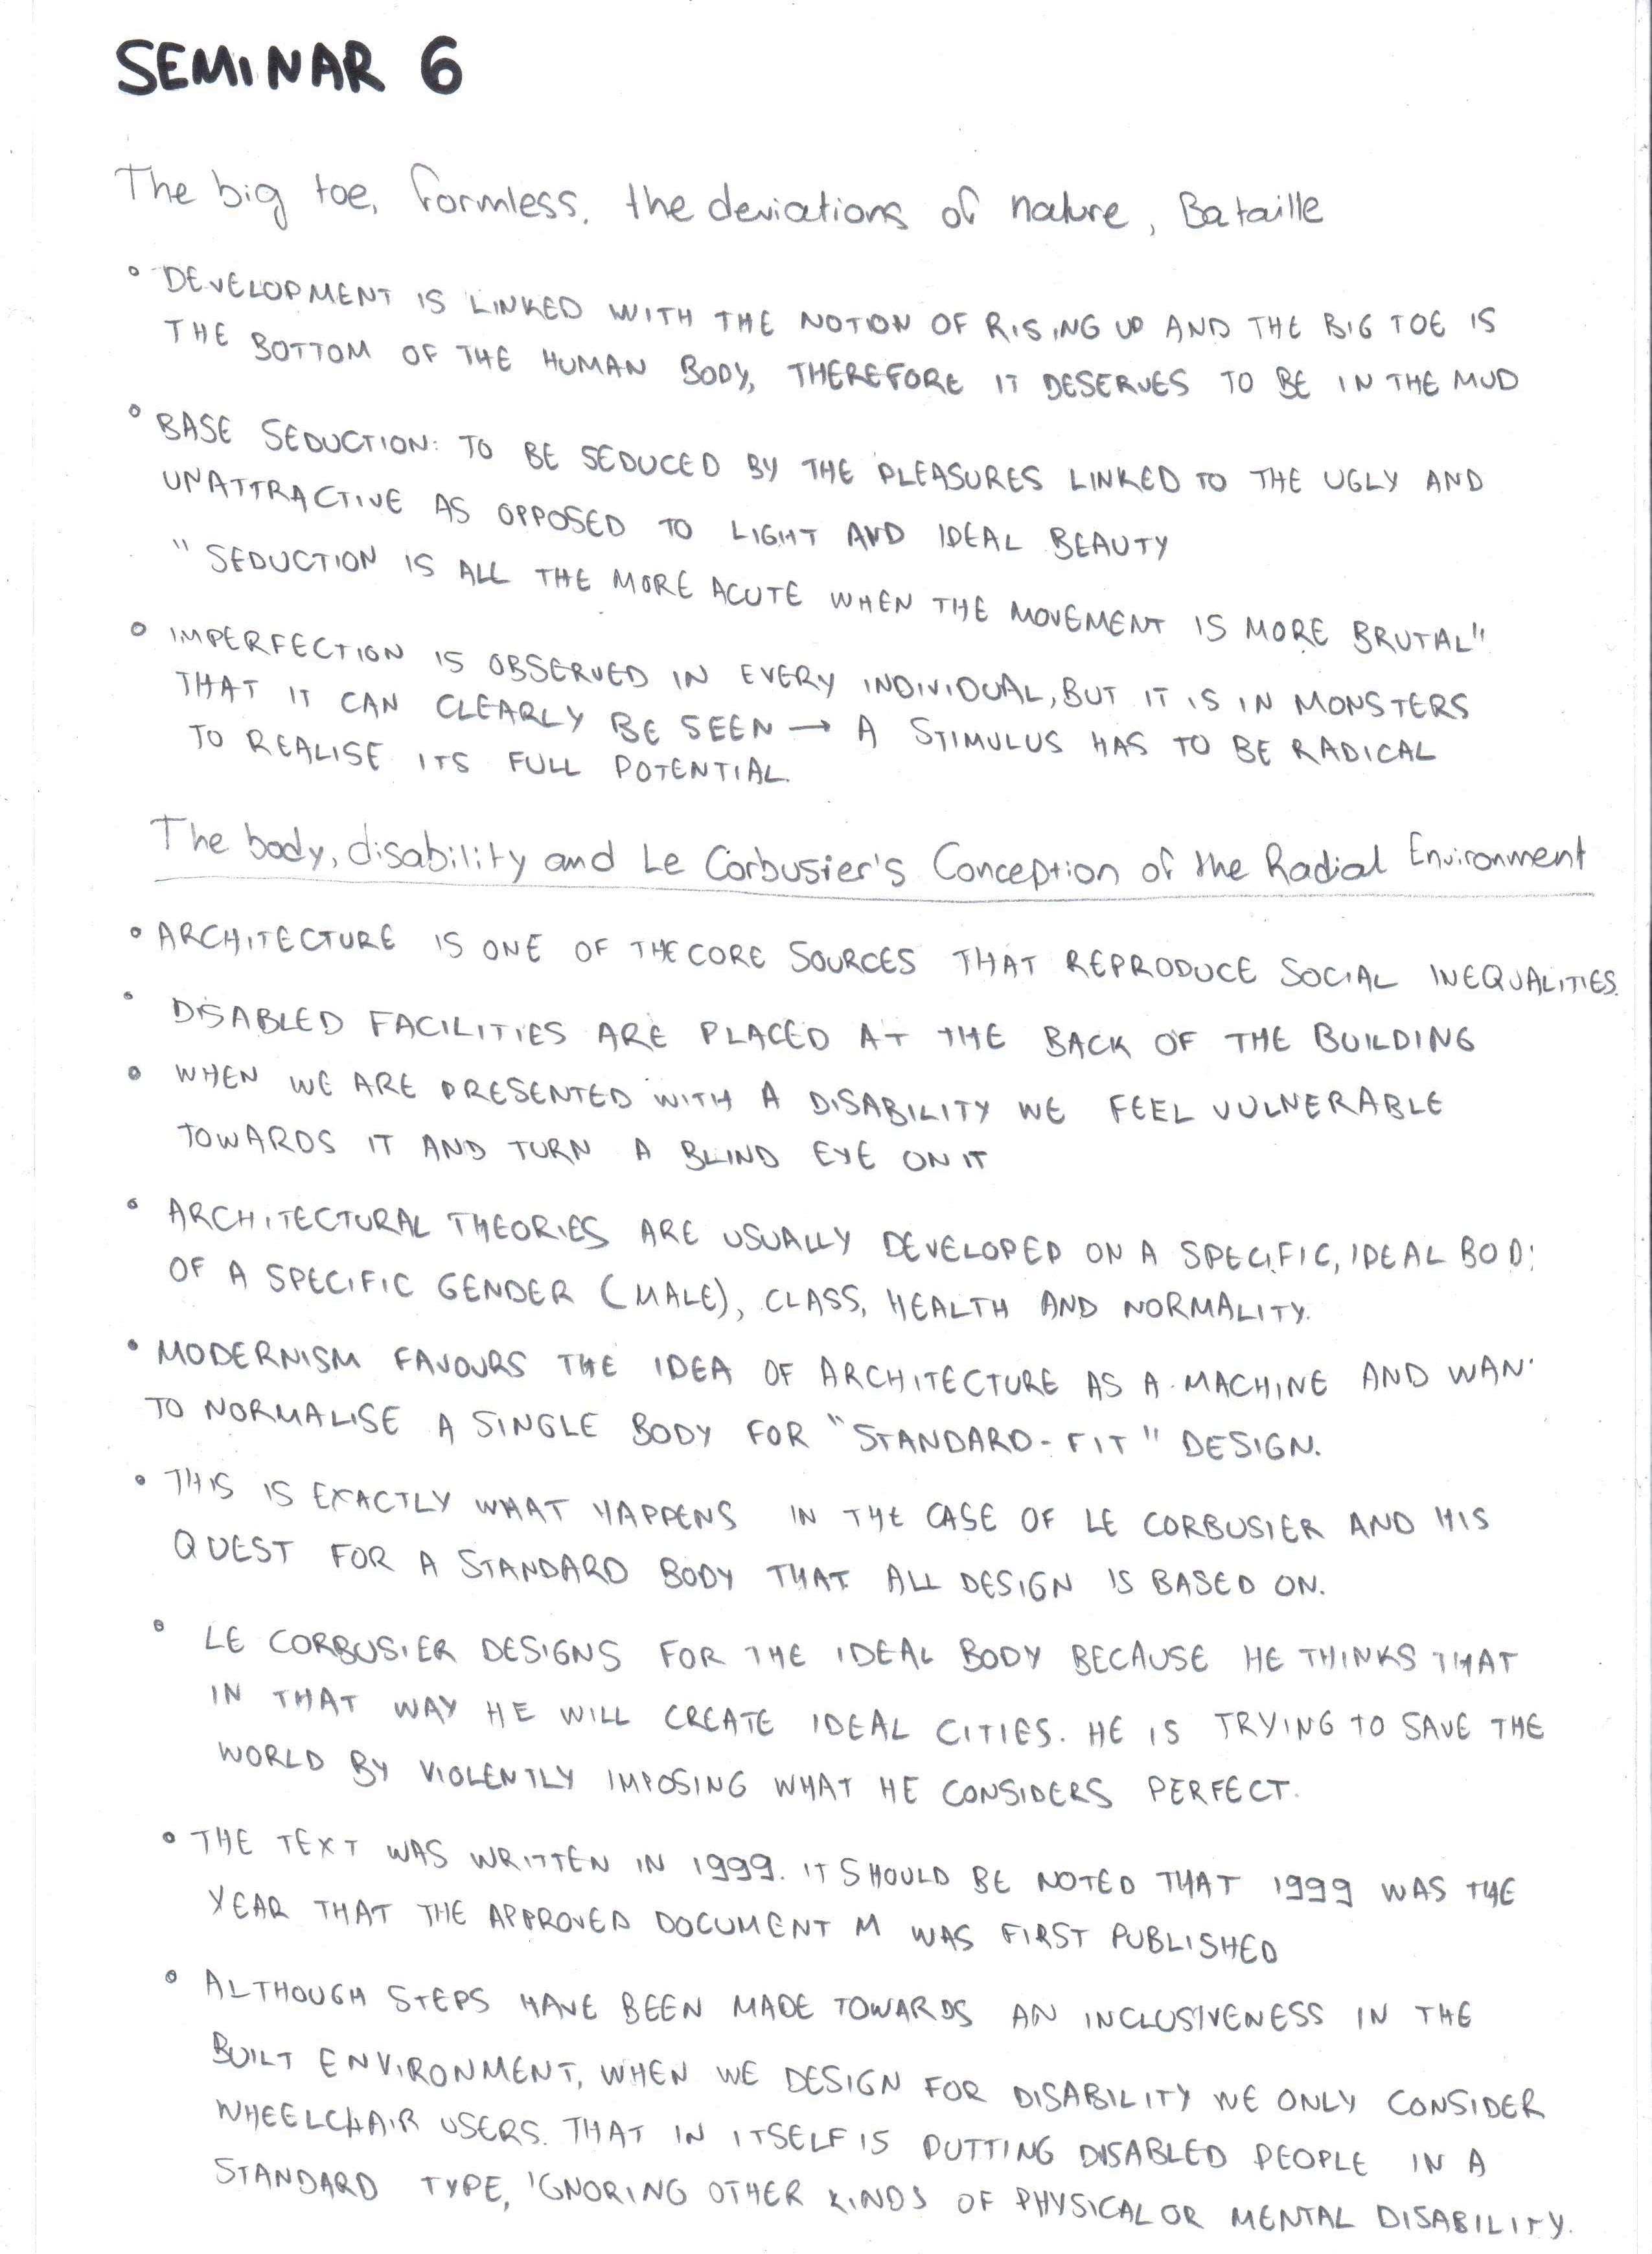 SEMINAR 6
The big toe, formless, the deviations of nature, Bataille
° DEVELOPMENT IS LINKED WITH THE NOTION OF RISING UP AND THE BIG TOE IS
THE BOTTOM OF THE HUMAN BODY, THEREFORE IT DESERVES TO BE IN THE MUD
° BASE SEDUCTION: TO BE SEDUCED BY THE PLEASURES LINKED TO THE UGLY AND
UNATTRACTIVE AS OPPOSED TO LIGHT AND IDEAL BEAUTY
"SEDUCTION IS ALL THE MORE ACUTE WHEN THE MOVEMENT IS MORE BRUTAL"
° IMPERFECTION IS OBSERVED IN EVERY INDIVIDUAL, BUT IT IS IN MONSTERS
THAT IT CAN CLEARLY BE SEEN → A STIMULUS HAS TO BE RADICAL
TO REALISE ITS FULL POTENTIAL.
The body, disability and Le Corbusier's Conception of the Radial Environment
° ARCHITECTURE IS ONE OF THE CORE SOURCES THAT REPRODUCE SOCIAL INEQUALITIES.
° DISABLED FACILITIES ARE PLACED AT THE BACK OF THE BUILDING
° WHEN WE ARE PRESENTED WITH A DISABILITY WE FEEL VULNERABLE
TOWARDS IT AND TURN A BLIND EYE ON IT
° ARCHITECTURAL THEORIES ARE USUALLY DEVELOPED ON A SPECIFIC, IDEAL BOD
OF A SPECIFIC GENDER (MALE), CLASS, HEALTH AND NORMALITY.
° MODERNISM FAVOURS THE IDEA OF ARCHITECTURE AS A MACHINE AND WAN
TO NORMALISE A SINGLE BODY FOR "STANDARD-FIT" DESIGN.
° THIS IS EXACTLY WHAT HAPPENS IN THE CASE OF LE CORBUSIER AND HIS
QUEST FOR A STANDARD BODY THAT ALL DESIGN IS BASED ON.
° LE CORBUSIER DESIGNS FOR THE IDEAL BODY BECAUSE HE THINKS THAT
IN THAT WAY HE WILL CREATE IDEAL CITIES. HE IS TRYING TO SAVE THE
WORLD BY VIOLENTLY IMPOSING WHAT HE CONSIDERS PERFECT.
° THE TEXT WAS WRITTEN IN 1999. IT SHOULD BE NOTED THAT 1999 WAS THE
YEAR THAT THE APPROVED DOCUMENT M WAS FIRST PUBLISHED
° ALTHOUGH STEPS HAVE BEEN MADE TOWARDS AN INCLUSIVENESS IN THE
BUILT ENVIRONMENT, WHEN WE DESIGN FOR DISABILITY WE ONLY CONSIDER
WHEELCHAIR USERS. THAT IN ITSELF IS PUTTING DISABLED PEOPLE IN A
STANDARD TYPE, IGNORING OTHER KINDS OF PHYSICAL OR MENTAL DISABILITY.